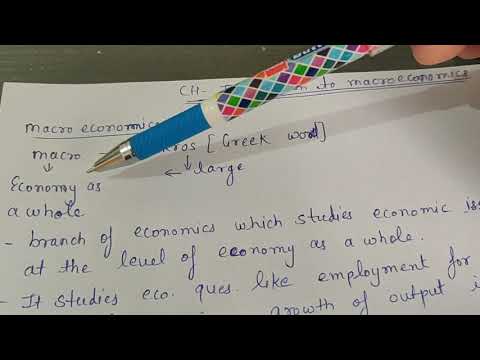 CH- to macroeconomics
macro economic
macro kros [Greek word]
Economy as large
a whole
- branch of economics which studies economic iss
at the level of economy as a whole.
- It studies eco. ques. like employment for
growth of output i